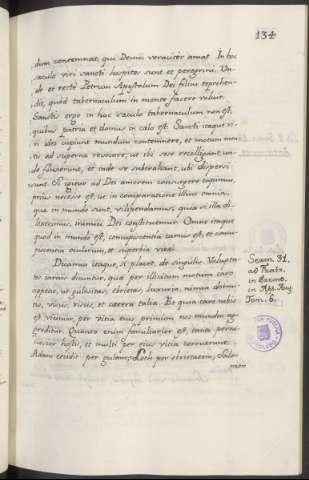 134
dum contemnat, qui Deum veraciter amat. In hoc
sæculo viri sancti hospites sunt et peregrini. Un-
de et recte Petrum Apostolum Dei filius reprehen-
dit, quod tabernaculum in monte facere voluit.
Sanctis ergo in hoc sæculo tabernaculum non est,
quibus patria et domus in cælo est. Sancti itaque vi-
ri ideo cupiunt mundum contemnere, et motum men-
tis ad superna revocare, ut ibi sese recolligant, un-
de fluxerunt, et inde se subtrahant, ubi dispersi
sunt. Si igitur ad Dei amorem consurgere cupimus,
prius necesse est, ut in comparatione illius omnia,
quæ in mundo sunt, vilipendamus, quia si illa di-
lexerimus, inimici Dei constituemur. Omne itaque
quod in mundo est, concupiscentia carnis est, et concu-
piscentia oculorum, et superbia vitæ.
Dicamus itaque, si placet, de singulis. Volupta-
tes carnis dicuntur, quæ per illicitum motum caro
appetit, ut gulositas, ebrietas, luxuria, nimia dormi-
tio, visus, risus, et cætera talia. Et quia caro nobis
est vicinior, per vitia ejus primum nos mundus ag-
greditur. Quanto enim familiarior est, tanto perni-
ciosior hostis, et multi per ejus vitia corruerunt.
Adam cecidit per gulam; Loth per ebrietatem, Salo-
mon
Serm. 31.
ad Fratr.
in Eremo.
in App. Aug.
Tom. 6.